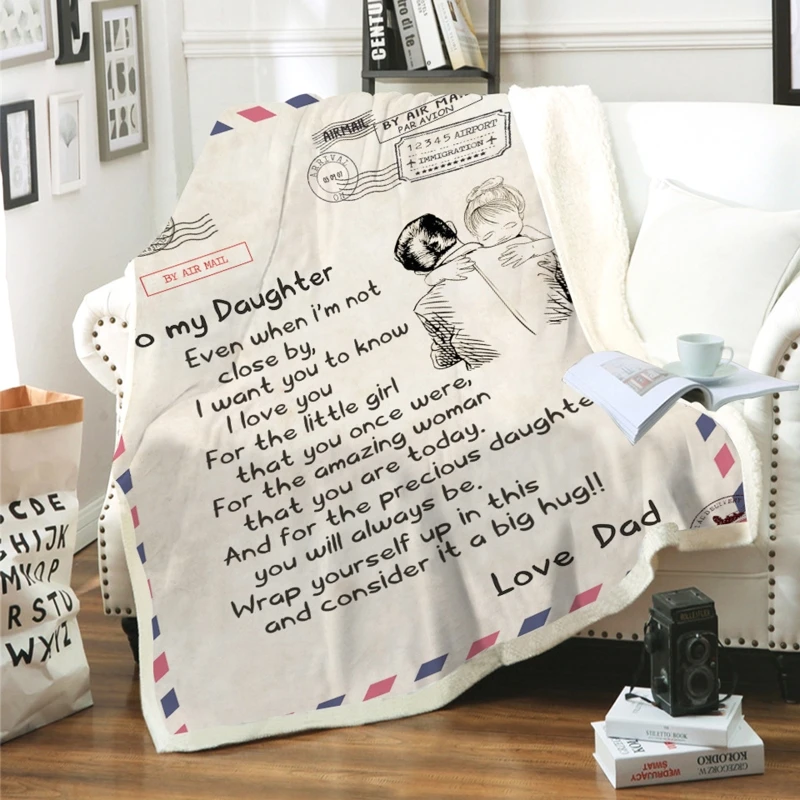 CENTURY
AIRMAIL
BY AIR MAIL
PAR AVION
ARRIVAL
12345 AIRPORT
IMMIGRATION
BY AIR MAIL
o my Daughter
Even when i'm not
close by,
I want you to know
I love you
For the little girl
that you once were,
For the amazing woman
that you are today.
And for the precious daughte
you will always be.
Wrap yourself up in this
and consider it a big hug!!
Love Dad
E
CDE
GHIJK
R STU
WXYZ
ROLLEIFLEX
WĘDRUJĄCY
ŚWIAT
GRZEGORZ W.
KOŁODKO